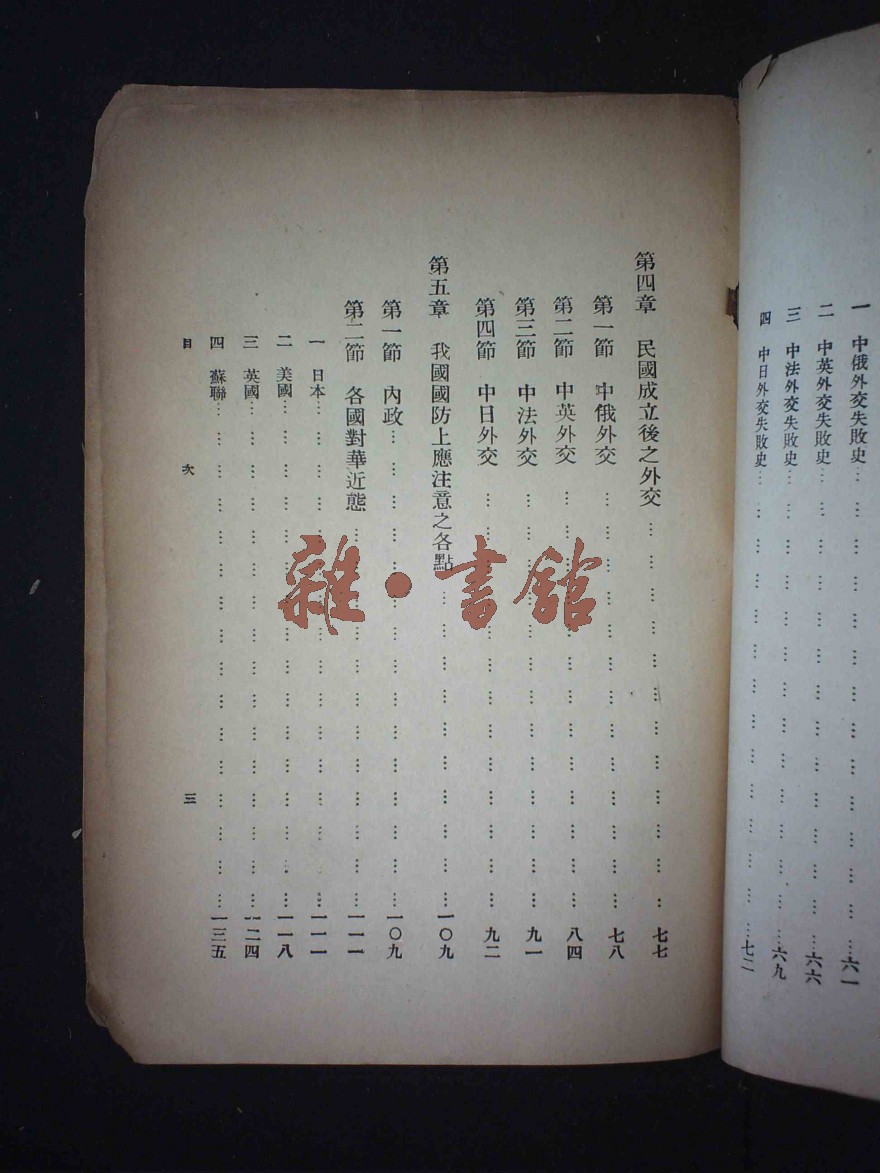 一 中俄外交失敗史……六一
二 中英外交失敗史……六六
三 中法外交失敗史……六九
四 中日外交失敗史……七二
第四章 民國成立後之外交……七七
第一節 中俄外交……七八
第二節 中英外交……八四
第三節 中法外交……九一
第四節 中日外交……九二
第五章 我國國防上應注意之各點……一〇九
第一節 內政……一〇九
第二節 各國對華近態……一一一
一 日本……一一一
二 美國……一一八
三 英國……一二四
四 蘇聯……一三五
目次 三
雜·書館